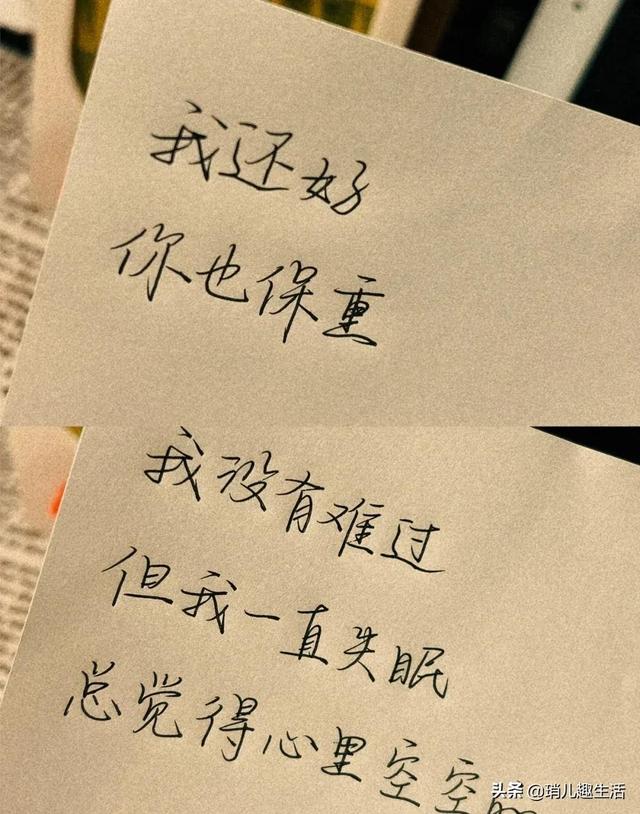 我还好
你也保重
我没有难过
但我一直失眠
总觉得心里空空
头条 @琑儿趣生活